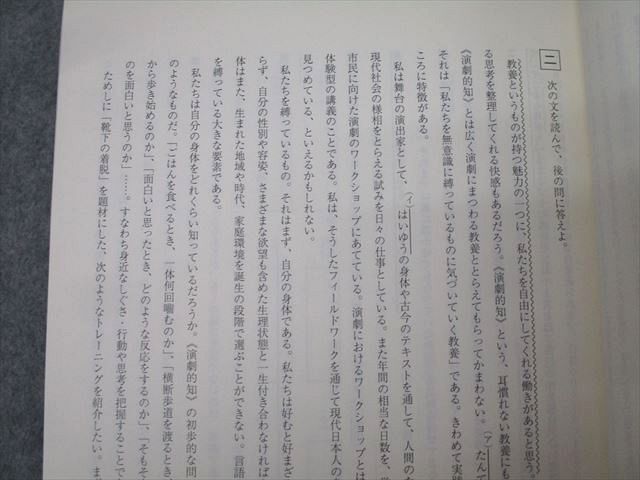 二 次の文を読んで、後の問に答えよ。
教養というものが持つ魅力の一つに、私たちを自由にしてくれる働きがあると思う。
る思考を整理してくれる快感もあるだろう。《演劇的知》という、耳慣れない教養にも
《演劇的知》とは広く演劇にまつわる教養ととらえてもらってかまわない。(ア)たんて
それは「私たちを無意識に縛っているものに気づいていく教養」である。きわめて実践
ころに特徴がある。
私は舞台の演出家として、(イ)はいゆうの身体や古今のテキストを通して、人間のた
現代社会の様相をとらえる試みを日々の仕事としている。また年間の相当な日数を、
市民に向けた演劇のワークショップにあてている。演劇におけるワークショップとは
体験型の講義のことである。私は、そうしたフィールドワークを通じて現代日本人の
見つめている、といえるかもしれない。
私たちを縛っているもの。それはまず、自分の身体である。私たちは好むと好まざ
らず、自分の性別や容姿、さまざまな欲望も含めた生理状態と一生付き合わなければ
体はまた、生まれた地域や時代、家庭環境を誕生の段階で選ぶことができない。言語
を縛っている大きな要素である。
私たちは自分の身体をどれくらい知っているだろうか。《演劇的知》の初歩的な問
のようなものだ。「ごはんを食べるとき、一体何回噛むのか」、「横断歩道を渡るとき、
から歩き始めるのか」、「面白いと思ったとき、どのような反応をするのか」、「そもそ
のを面白いと思うのか」……。すなわち身近なしぐさ・行動や思考を把握することで
ためしに「靴下の着脱」を題材にした、次のようなトレーニングを紹介したい。ま